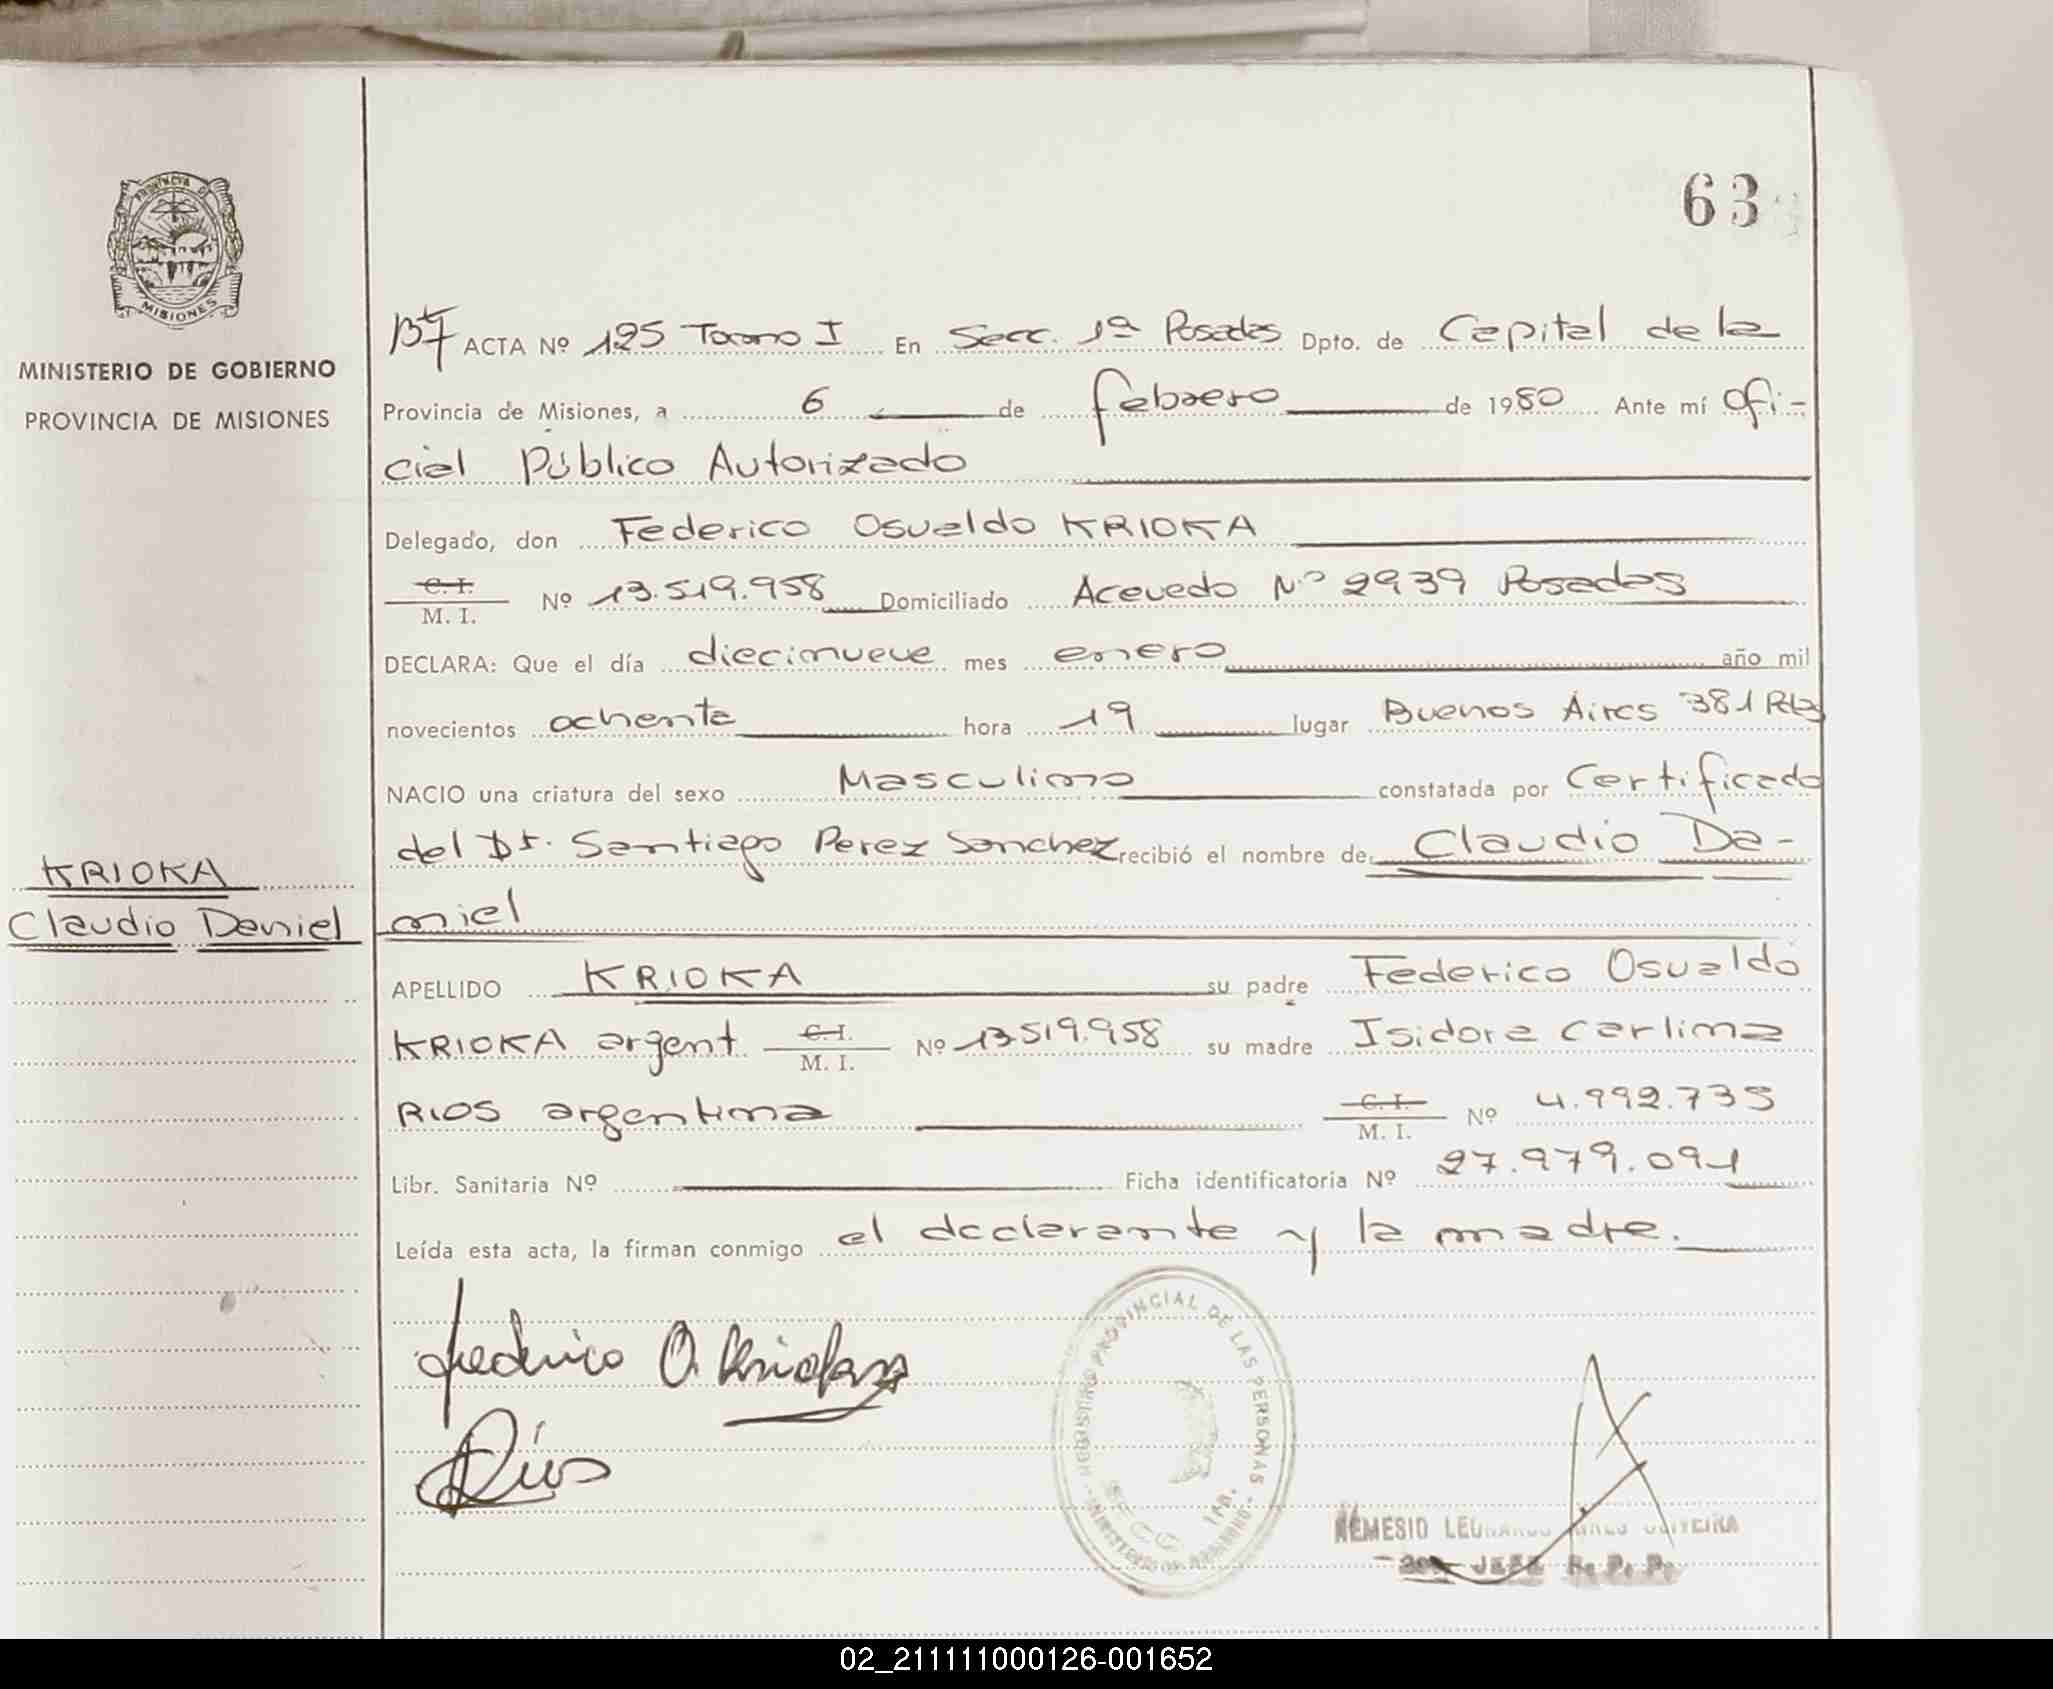 63
PROVINCIA DE
MISIONES
MINISTERIO DE GOBIERNO
PROVINCIA DE MISIONES
ACTA Nº 125 Tomo I En Secc. 1ª Posadas Dpto. de Capital de la
Provincia de Misiones, a 6 de febrero de 1980 Ante mí ofi-
cial Público Autorizado
Delegado, don Federico Osvaldo KRIOKA
C. I.
M. I. Nº 13.519.958 Domiciliado Acevedo Nº 2939 Posadas
DECLARA: Que el día diecinueve mes enero año mil
novecientos ochenta hora 19 lugar Buenos Aires 381 Pdas
NACIO una criatura del sexo Masculino constatada por Certificado
del Dr. Santiago Perez Sanchez recibió el nombre de Claudio Da-
niel
KRIOKA
Claudio Daniel
APELLIDO KRIOKA su padre Federico Osvaldo
KRIOKA argent C. I.
M. I. Nº 13519.958 su madre Isidora Carlina
RIOS argentina C. I.
M. I. Nº 4.992.735
Libr. Sanitaria Nº Ficha identificatoria Nº 27.979.091
Leída esta acta, la firman conmigo el declarante y la madre.
Federico O. Krioka
Ríos
REGISTRO PROVINCIAL DE LAS PERSONAS
SECC 1RA.
MINISTERIO DE GOBIERNO
NEMESIO OLIVEIRA
JEFE R. P. P.
02_211111000126-001652